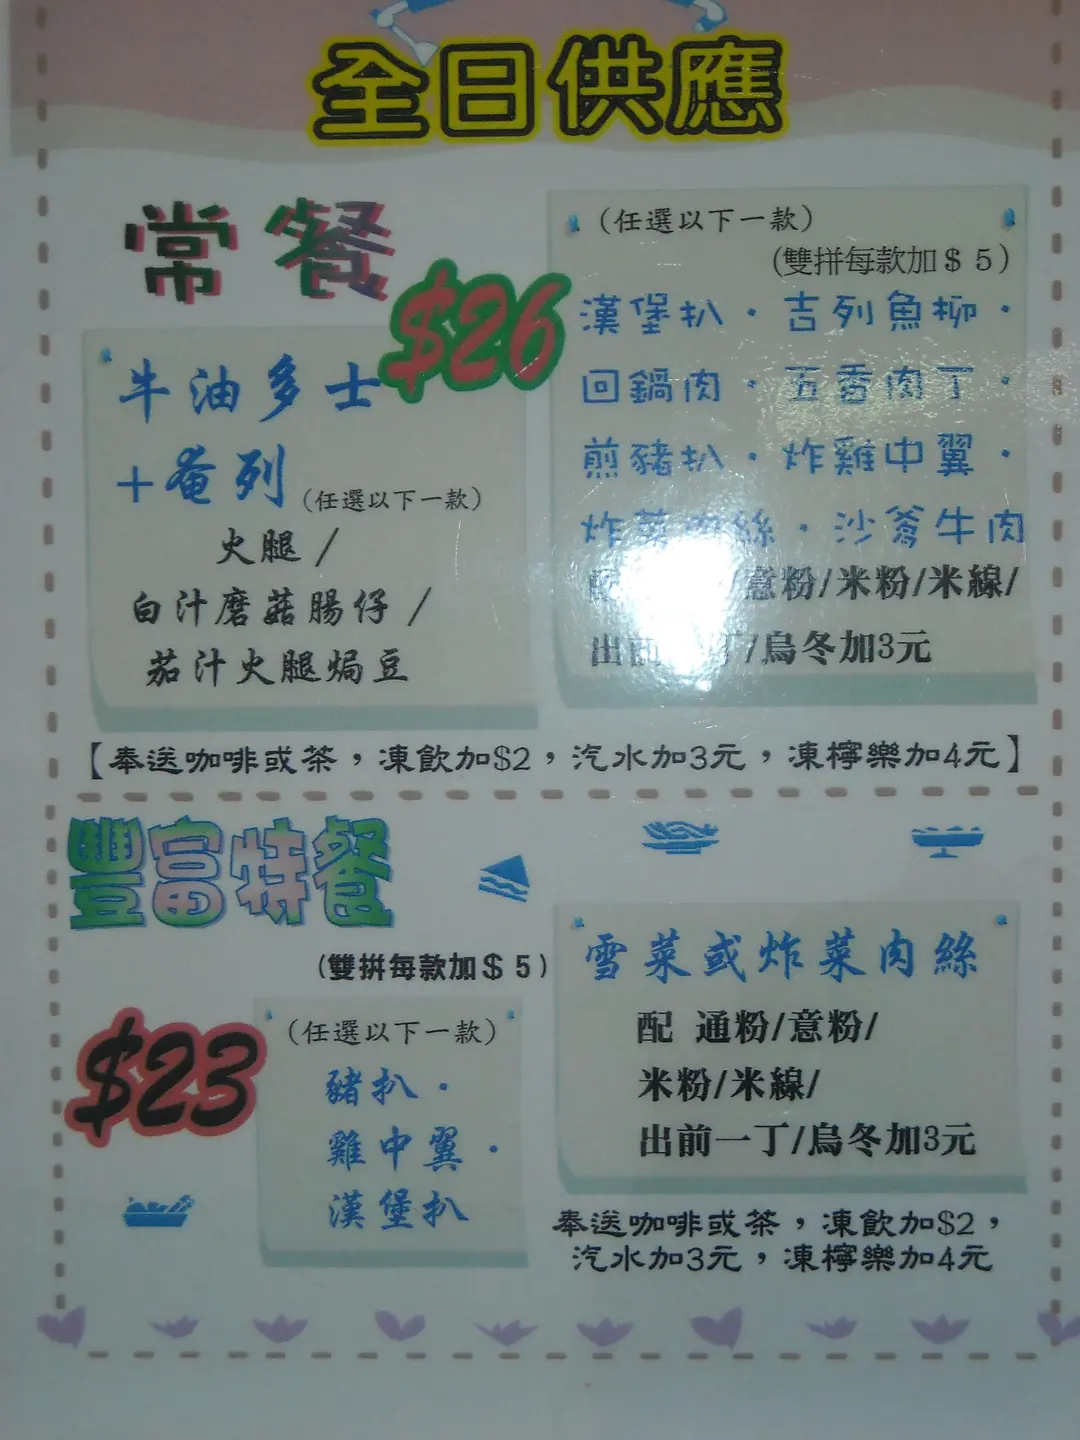 全日供應
常餐
$26
牛油多士
+奄列(任選以下一款)
火腿/
白汁磨菇腸仔/
茄汁火腿焗豆
(任選以下一款)
(雙拼每款加$5)
漢堡扒．吉列魚柳．
回鍋肉．五香肉丁．
煎豬扒．炸雞中翼．
炸菜肉絲．沙爹牛肉
配 意粉/米粉/米線/
出前一丁/烏冬加3元
【奉送咖啡或茶，凍飲加$2，汽水加3元，凍檸樂加4元】
豐富特餐
(雙拼每款加$5)
$23
(任選以下一款)
豬扒．
雞中翼．
漢堡扒
雪菜或炸菜肉絲
配 通粉/意粉/
米粉/米線/
出前一丁/烏冬加3元
奉送咖啡或茶，凍飲加$2，
汽水加3元，凍檸樂加4元